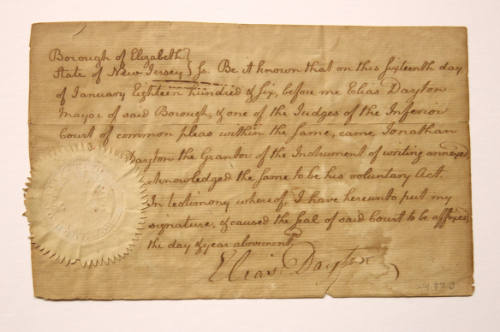 Borough of Elizabeth
State of New Jersey } Ss. Be it known that on this sixteenth day
of January Eighteen hundred & six, before me Elias Dayton
Mayor of said Borough, & one of the Judges of the Inferior
Court of common pleas within the same, came Jonathan
Dayton the Grantor of the Instrument of writing annexed
Acknowledged the same to be his voluntary Act.
In testimony whereof I have hereunto put my
signature, & caused the seal of said Court to be affixed
the day & year abovement.d
Elias Dayton